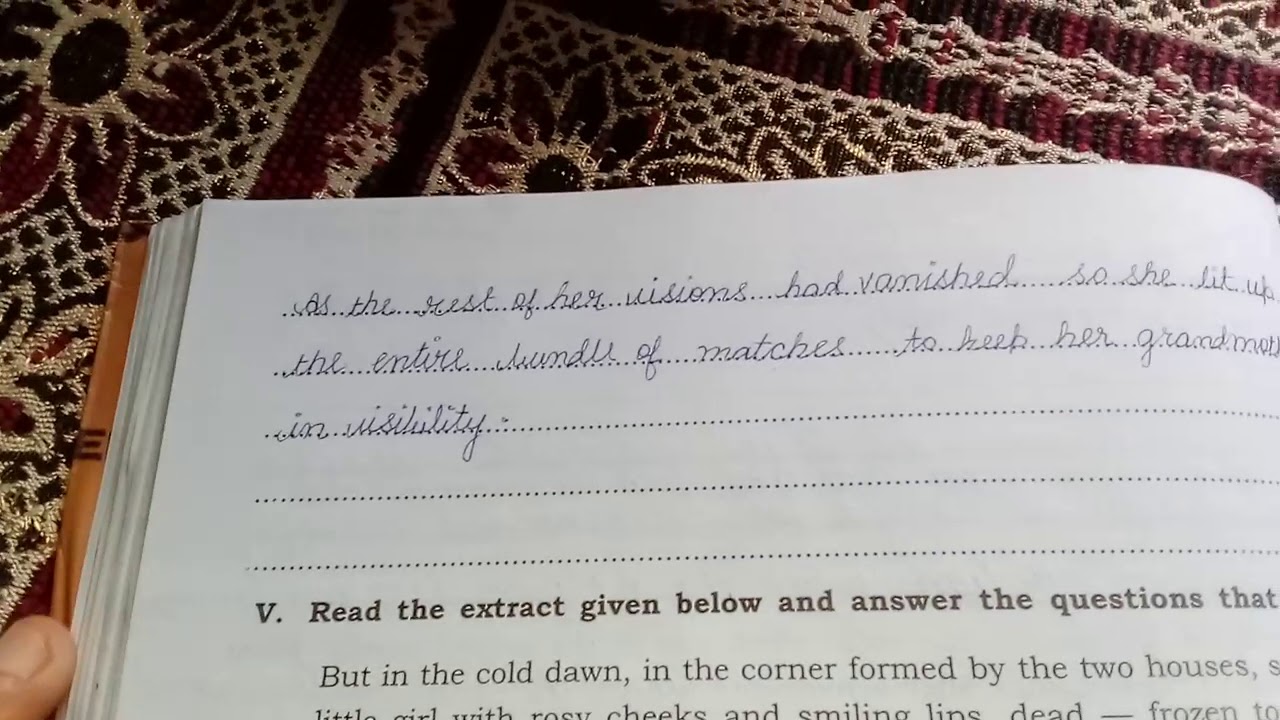 As the rest of her visions had vanished so she lit up
the entire bundle of matches to keep her grandmot
in visibility.
V. Read the extract given below and answer the questions that
But in the cold dawn, in the corner formed by the two houses, s
little girl with rosy cheeks and smiling lips, dead — frozen to
E